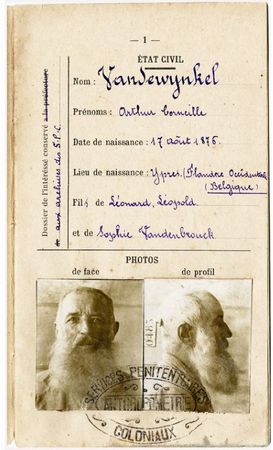 — 1 —
ÉTAT CIVIL
Nom : Vandewynkel
Prénoms : Arthur Corneille
Date de naissance : 17 août 1876.
Lieu de naissance : Ypres (Flandre Occidentale
(Belgique)
Fils de Léonard, Léopold.
et de Sophie Vandenbrouck.
Dossier de l'intéressé conservé à la préfecture
aux archives des S.P.C.
PHOTOS
de face
de profil
SERVICES PENITENTIAIRES
ANTHROPOMETRIE
COLONIAUX